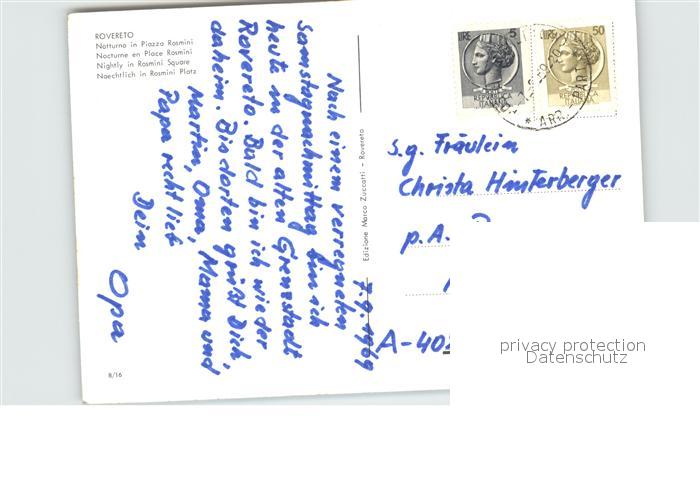 ROVERETO
Notturno in Piazza Rosmini
Nocturne en Place Rosmini
Nightly in Rosmini Square
Naechtlich in Rosmini Platz
7.9.1969
Nach einem verregneten
Samstagnachmittag bin ich
heute in der alten Grenzstadt
Rovereto. Bald bin ich wieder
daheim. Bis dorten grüßt Dich,
Martin, Oma, Mama und
Papa recht lieb
Dein
Opa
8/16
Edizione Marco Zuccatti - Rovereto
LIRE 5
REPVBBLICA
ITALIANA
LIRE 50
REPVBBLICA
ITALIANA
ARR
s.g. Fräulein
Christa Hinterberger
p.A.
A-40
privacy protection
Datenschutz